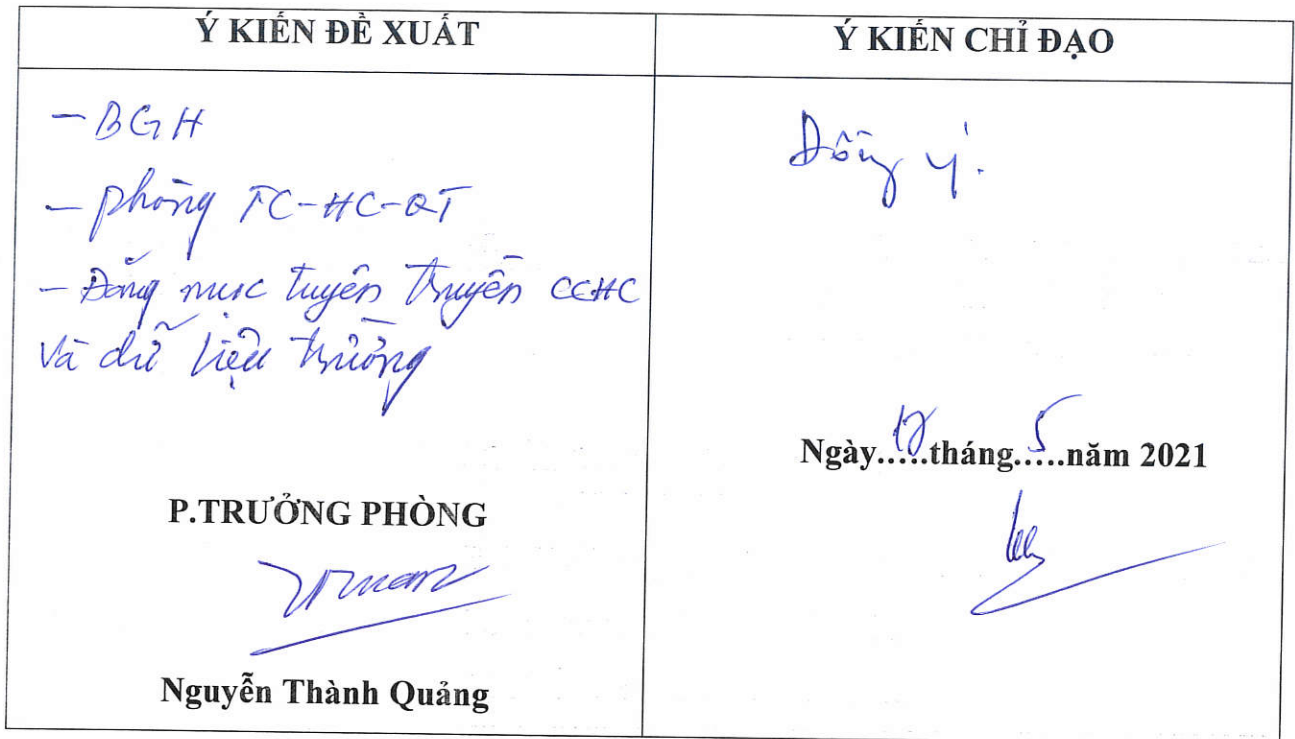 Ý KIẾN ĐỀ XUẤT
- BGH
- phòng TC-HC-QT
- Đăng mục tuyên truyền CCHC
và dữ liệu trường
P.TRƯỞNG PHÒNG
Nguyễn Thành Quảng
Ý KIẾN CHỈ ĐẠO
Đồng ý.
Ngày.....tháng..5...năm 2021